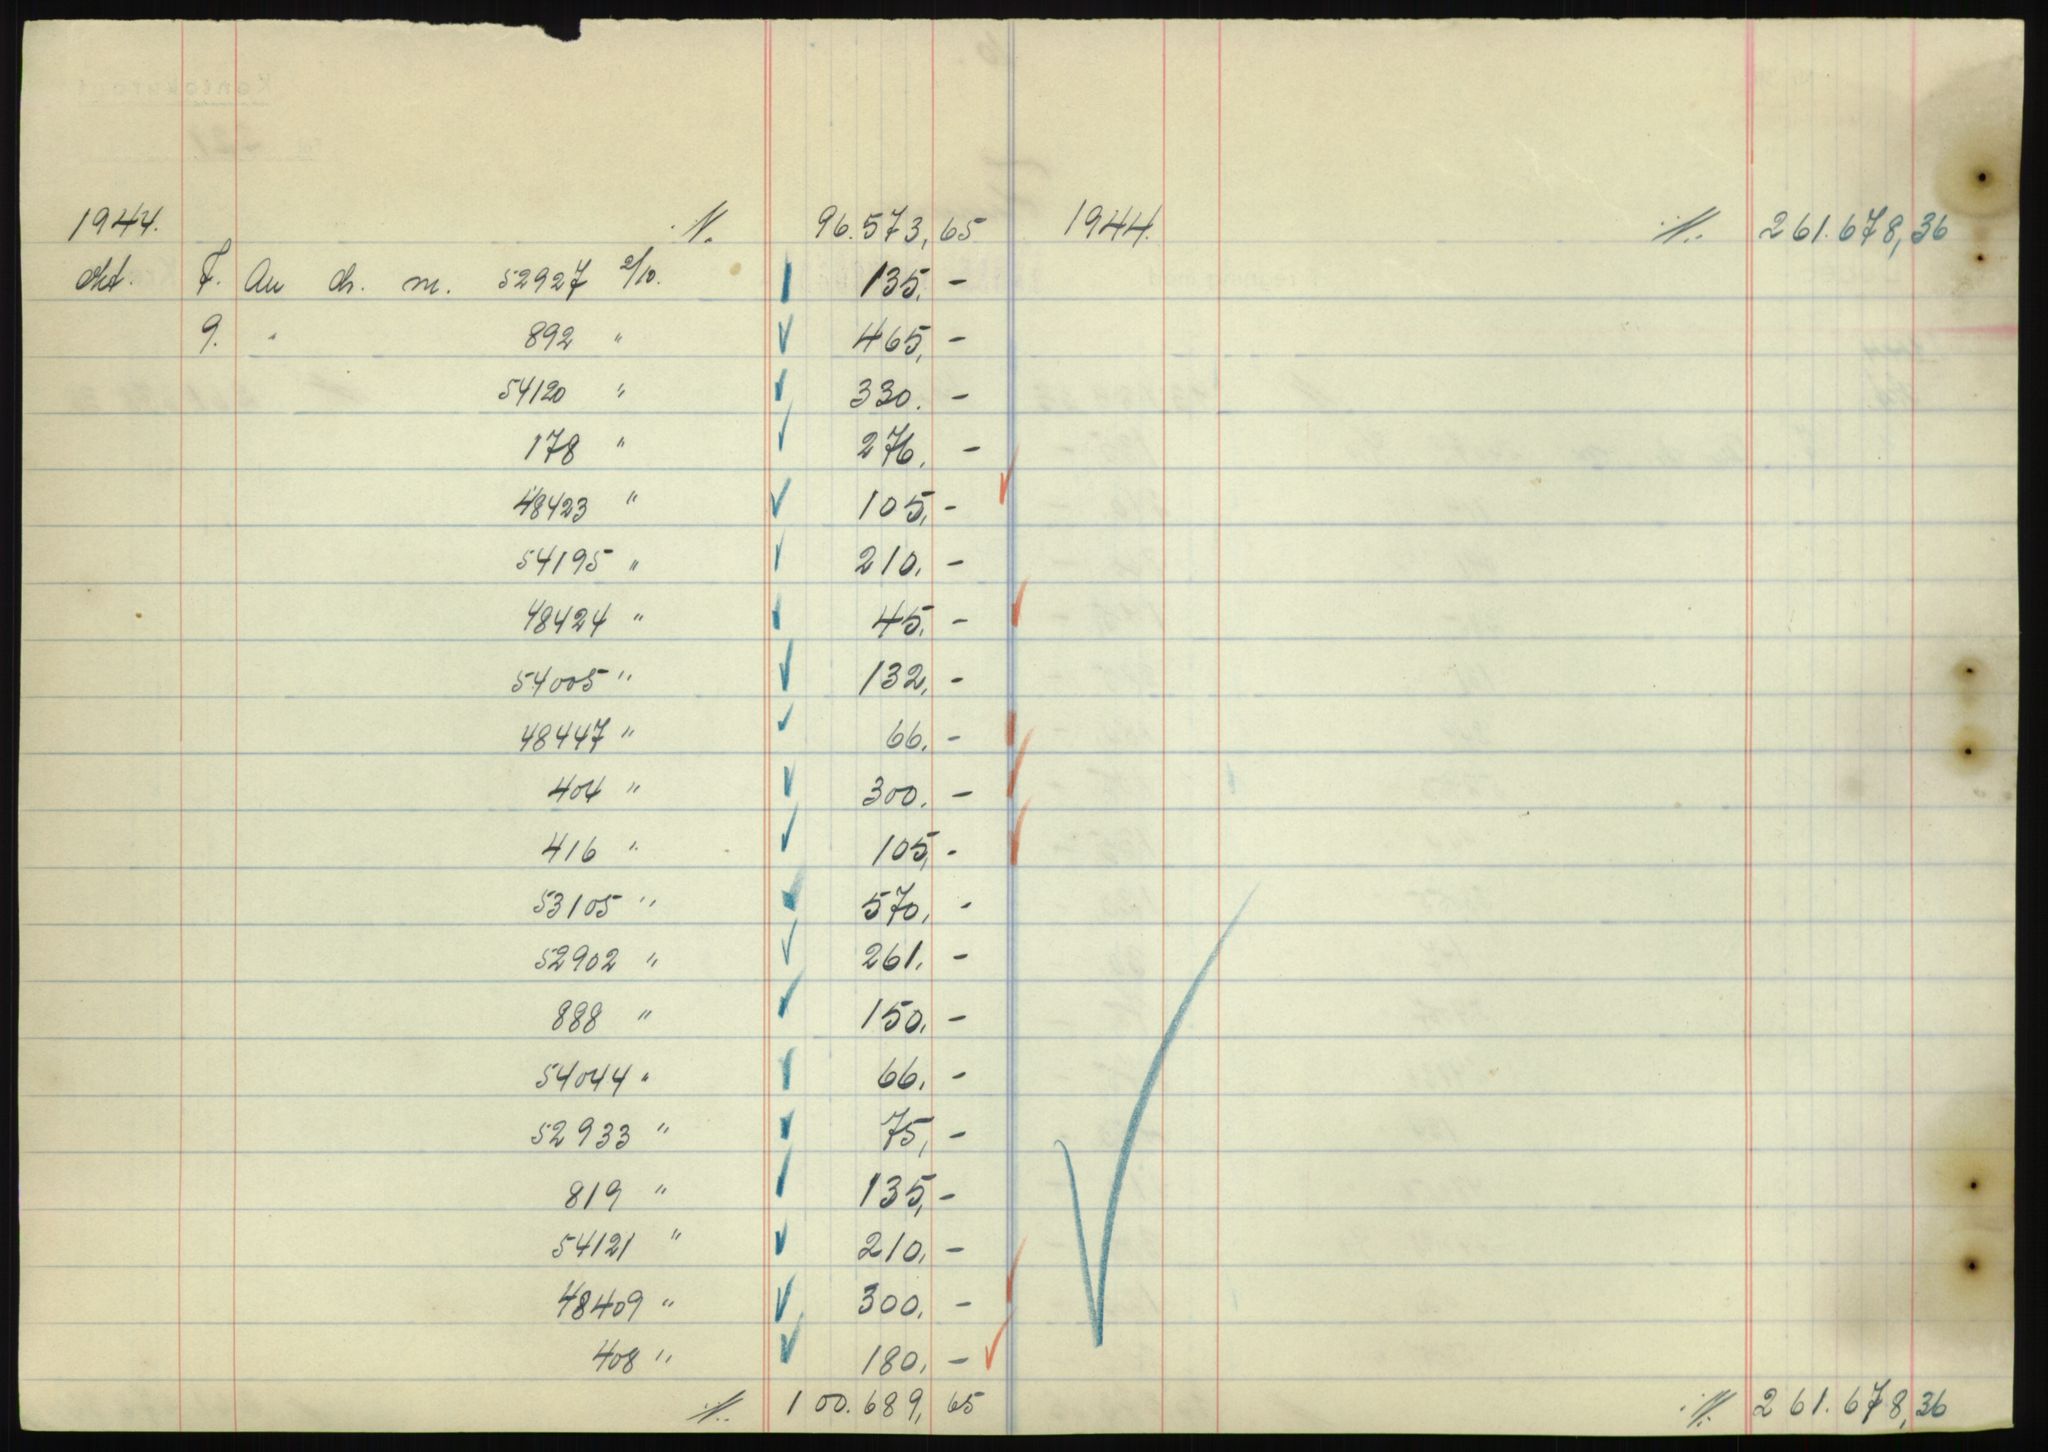 1944. ./. 96.573,65 1944. ./. 261.678,36
okt. 7. An ch. m. 52927 2/10. 135,-
9. " 892 " 465,-
54120 " 330.-
178 " 276.-
48423 " 105,-
54195 " 210.-
48424 " 45,-
54005 " 132,-
48447 " 66.-
404 " 300.-
416 " 105,-
53105 " 570,-
52902 " 261.-
888 " 150.-
54044 " 66.-
52933 " 75,-
819 " 135,-
54121 " 210.-
48409 " 300.-
408 " 180.-
./. 100.689,65 ./. 261.678,36